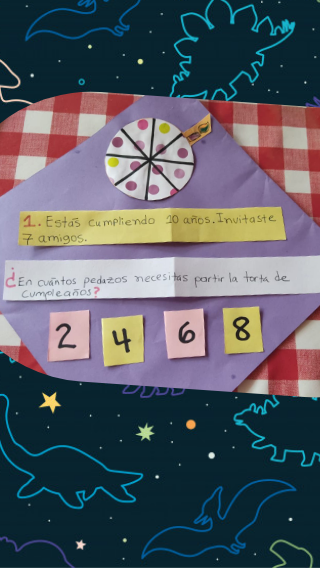 1. Estás cumpliendo 10 años. Invitaste
7 amigos.
¿En cuántos pedazos necesitas partir la torta de
cumpleaños?
2 4 6 8